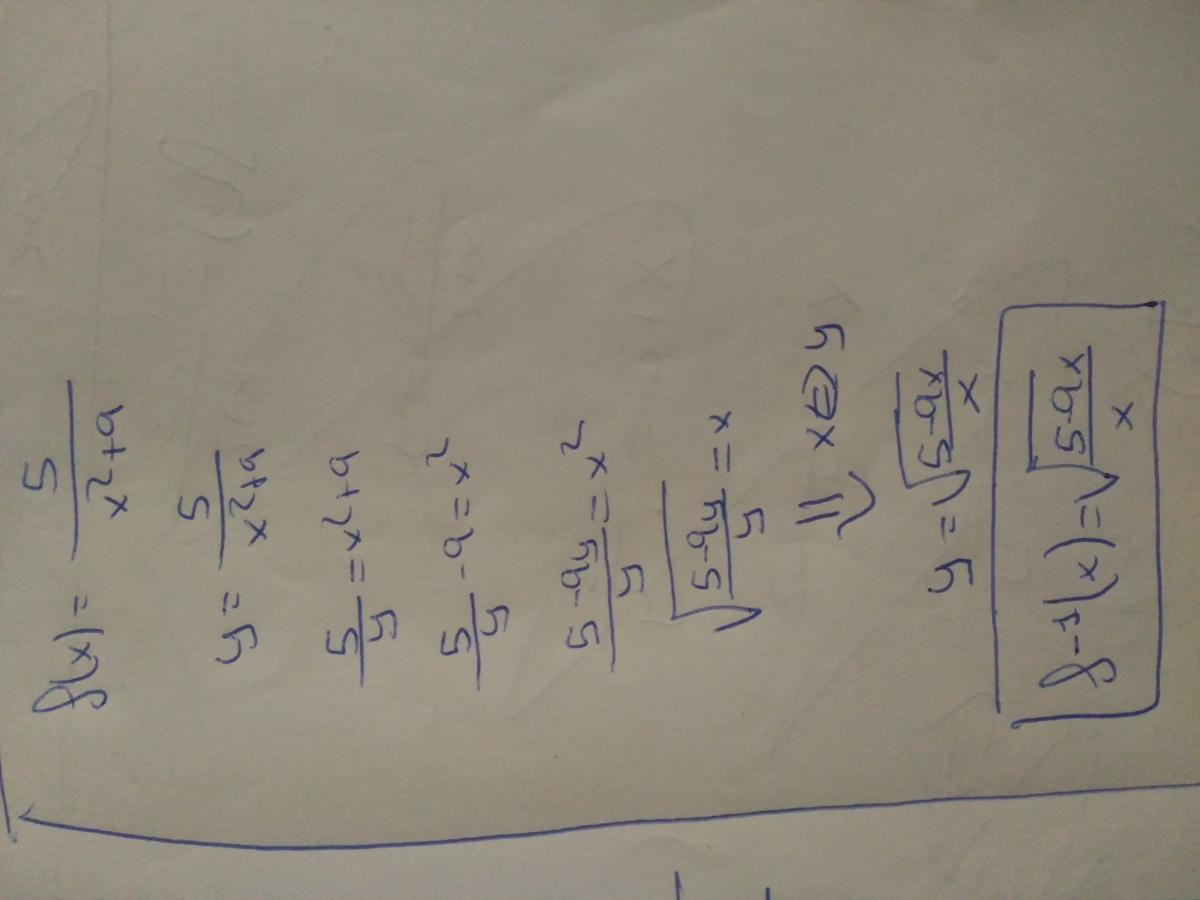 f(x) = 5/(x²+9)
y = 5/(x²+9)
5/y = x²+9
5/y - 9 = x²
(5-9y)/y = x²
√((5-9y)/y) = x
⇓ x⇔y
y = √((5-9x)/x)
f-1(x) = √((5-9x)/x)